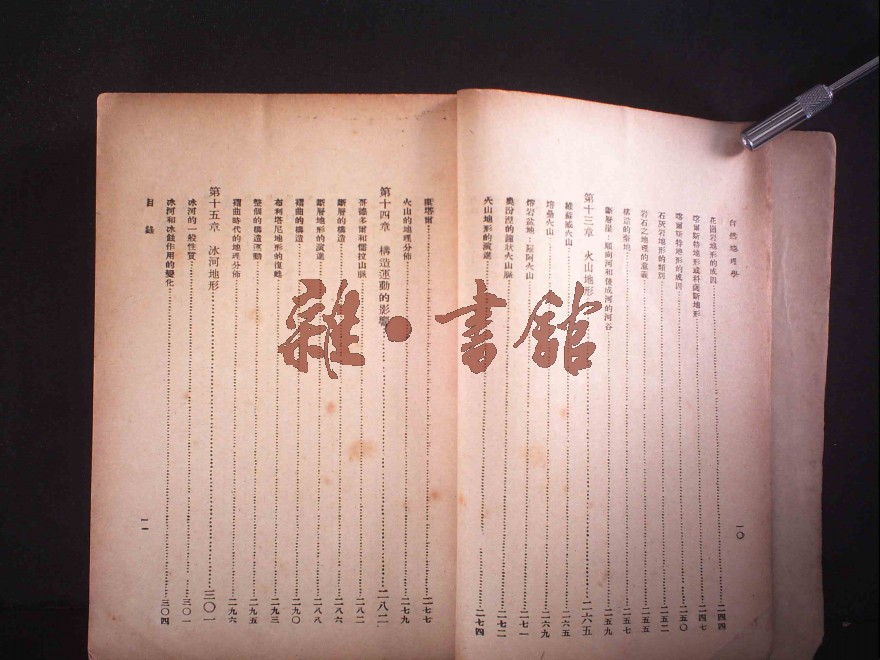 自然地理學
花崗岩地形的成因……二四四
喀爾斯特地形或科薩斯地形……二四七
喀爾斯特地形的成因……二五〇
石灰岩地形的類別……二五二
岩石之地理的意義……二五五
構造的窪地……二五七
斷層崖：順向河和後成河的河谷……二五九
第十三章 火山地形……二六五
維蘇威火山……二六五
培雷火山……二六九
熔岩盆地：夏阿火山……二七一
奧汾涅的鏈狀火山脈……二七二
火山地形的演進……二七四
一〇
康塔爾……二七七
火山的地理分佈……二七九
第十四章 構造運動的影響……二八二
哥德多爾和儒拉山脈……二八二
斷層的構造……二八六
斷層地形的演進……二八八
褶曲的構造……二九〇
布利塔尼地形的復甦……二九三
整個的構造運動……二九五
褶曲時代的地理分佈……二九六
第十五章 冰河地形……三〇一
冰河的一般性質……三〇一
冰河和冰蝕作用的變化……三〇四
目錄
一一
雜·書館